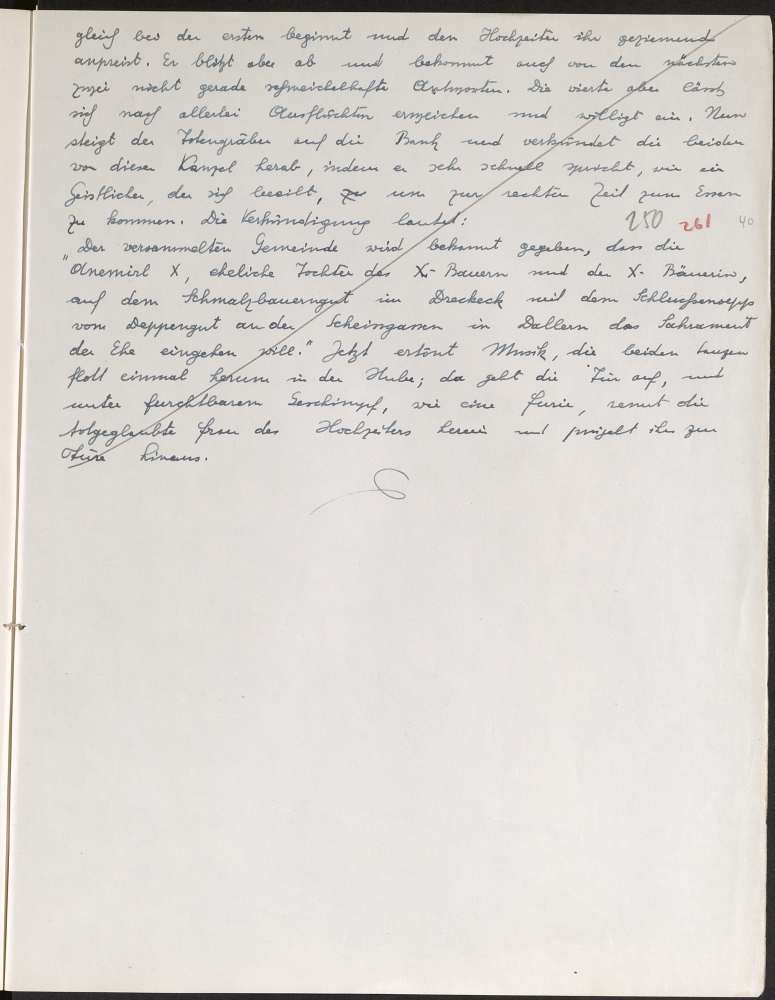 gleich bei der ersten beginnt und den Hochzeiter ihr geziemend
anpreist. Er blitzt aber ab und bekommt auch von den nächsten
zwei nicht gerade schmeichelhafte Antworten. Die vierte aber lässt
sich nach allerlei Ausflüchten erweichen und willigt ein. Nun
steigt der Totengräber auf die Bank und verkündet die beiden
von dieser Kanzel herab, indem er sehr schnell spricht, wie ein
Geistlicher, der sich beeilt, um zur rechten Zeit zum Essen
zu kommen. Die Verkündigung lautet:
250 261 40
"Der versammelten Gemeinde wird bekannt gegeben, dass die
Anemirl X, eheliche Tochter des X-Bauern und der X-Bäuerin,
auf dem Schmalzbauerngut im Dreckeck mit dem
vom Deppengut an der Scheissgassen in Dallern das Sakrament
der Ehe eingehen will." Jetzt ertönt Musik, die beiden tanzen
flott einmal herum in der Stube; da geht die Tür auf, und
unter furchtbarem Geschimpf, wie eine Furie, rennt die
totgeglaubte Frau des Hochzeiters herein und prügelt ihn zur
Türe hinaus.